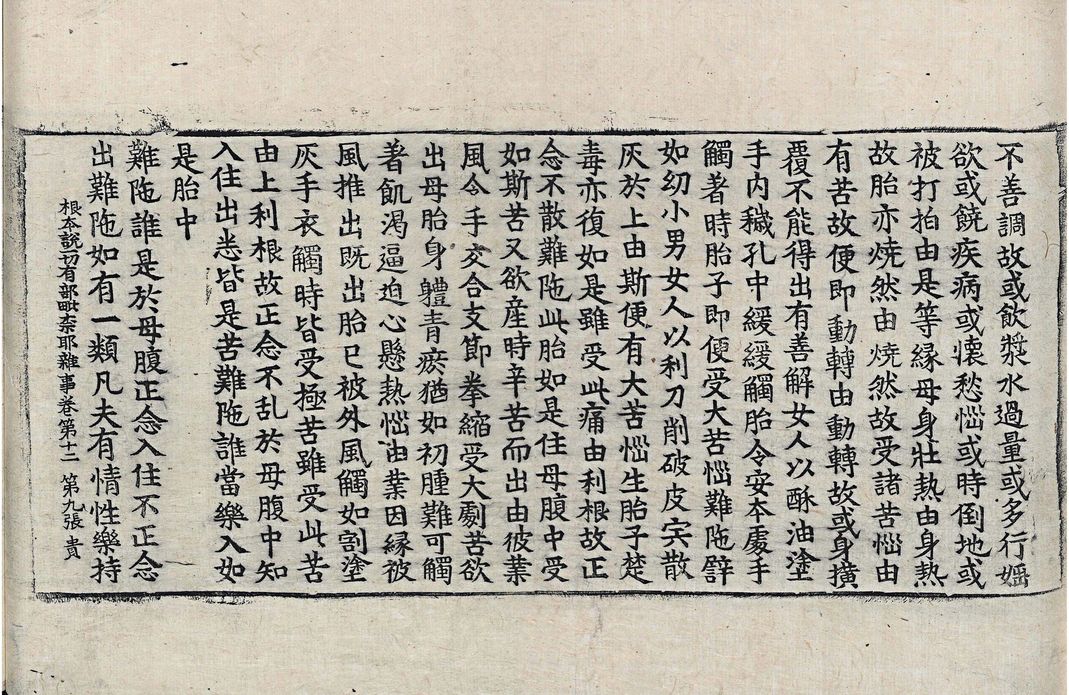 不善調故或飲漿水過量或多行婬
欲或饒疾病或懷愁惱或時倒地或
被打拍由是等縁母身壯熱由身熱
故胎亦燒然由燒然故受諸苦惱由
有苦故便即動轉由動轉故或身撗
覆不能得出有善解女人以酥油塗
手內穢孔中緩緩觸胎令安夲處手
觸著時胎子即便受大苦惱難陁辟
如幼小男女人以利刀削破皮宍散
灰於上由斯便有大苦惱生胎子楚
毒亦復如是雖受此痛由利根故正
念不散難陁此胎如是住母腹中受
如斯苦又欲産時辛苦而出由彼業
風令手交合支節拳縮受大劇苦欲
出母胎身軆青瘀猶如初腫難可觸
著飢渴逼迫心懸熱惱由業因縁被
風推出既出胎已被外風觸如割塗
灰手衣觸時皆受極苦雖受此苦
由上利根故正念不乱於母腹中知
入住出悉皆是苦難陁誰當樂入如
是胎中
難陁誰是於母腹正念入住不正念
出難陁如有一類凡夫有情性樂持
根本說一切有部毗奈耶雜事卷第十二 第九張 貴